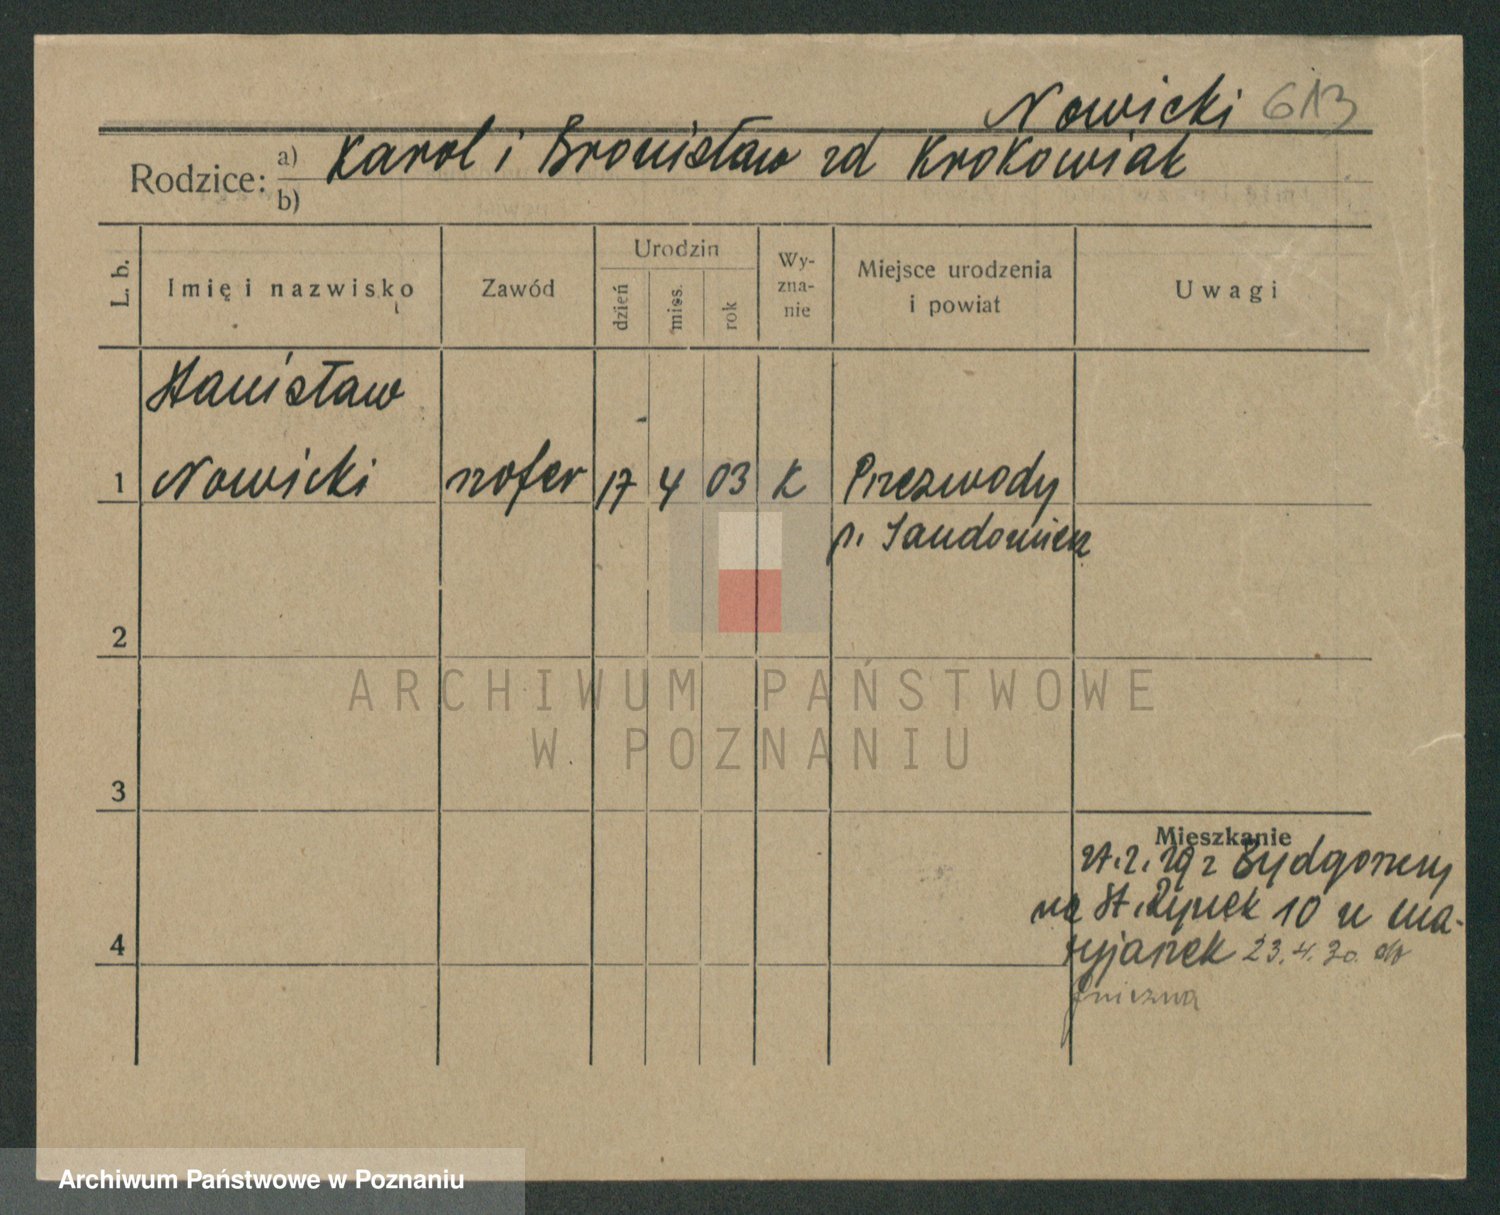 Nowicki 613
Rodzice: a) Karol i Bronisław zd Krokowiak
b)
L. b. Imię i nazwisko Zawód Urodzin dzień mies. rok Wyznanie Miejsce urodzenia i powiat Uwagi
Stanisław
1 Nowicki szofer 17 4 03 K Przezwody
p. Sandomierz
2
ARCHIWUM PAŃSTWOWE
W POZNANIU
3
Mieszkanie
z Bydgoszczy
na St. Rynek 10 u Ma-
ryjanek 23.4.30. do
Gniezna
4
Archiwum Państwowe w Poznaniu